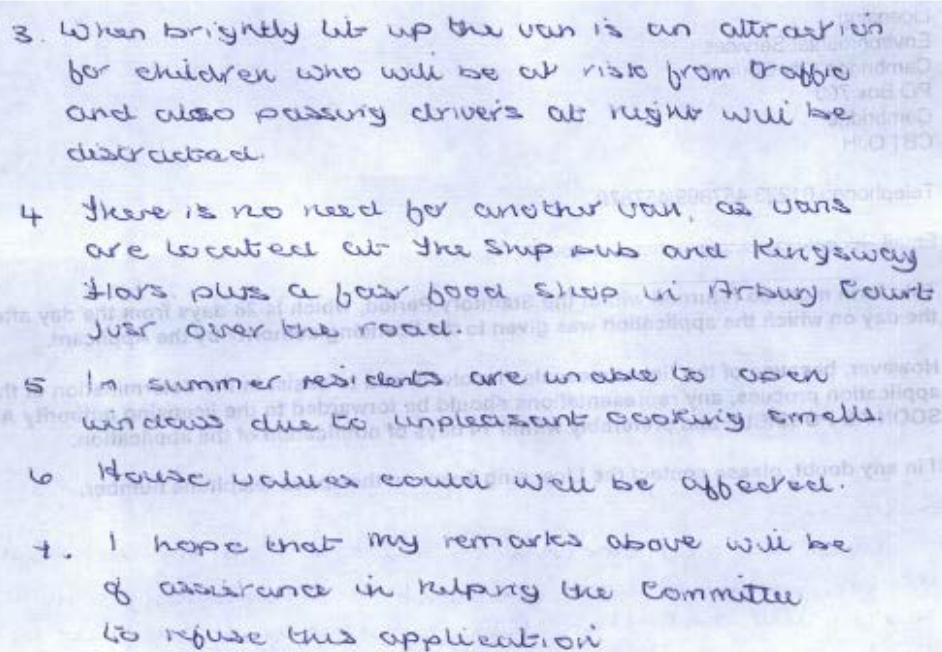 3. When brightly lit up the van is an attraction
for children who will be at risk from traffic
and also passing drivers at night will be
distracted.
4 There is no need for another van, as vans
are located at The Ship pub and Kingsway
Flats plus a fast food shop in Arbury Court
just over the road.
5 In summer residents are unable to open
windows due to unpleasant cooking smells.
6 House values could well be affected.
7. I hope that my remarks above will be
of assistance in helping the Committee
to refuse this application